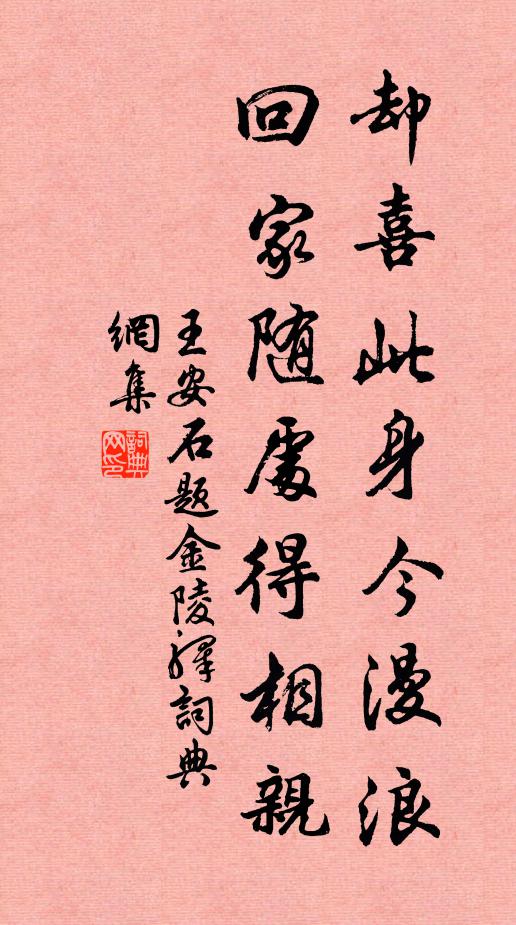 却喜此身今漫浪
回家随處得相親
王安石题金陵驿詞典
網集
詞典网印